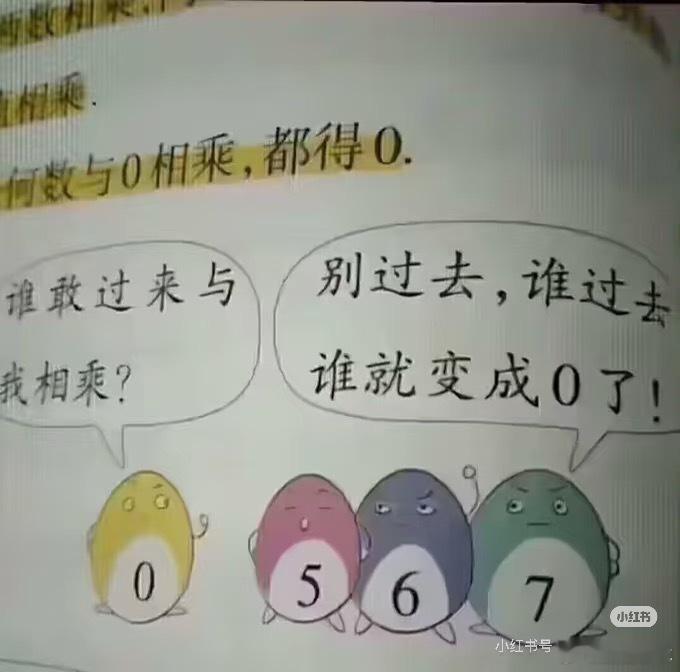 相乘.
何数与0相乘,都得0.
谁敢过来与
我相乘?
别过去,谁过去
谁就变成0了!
0
5
6
7
小红书
小红书号